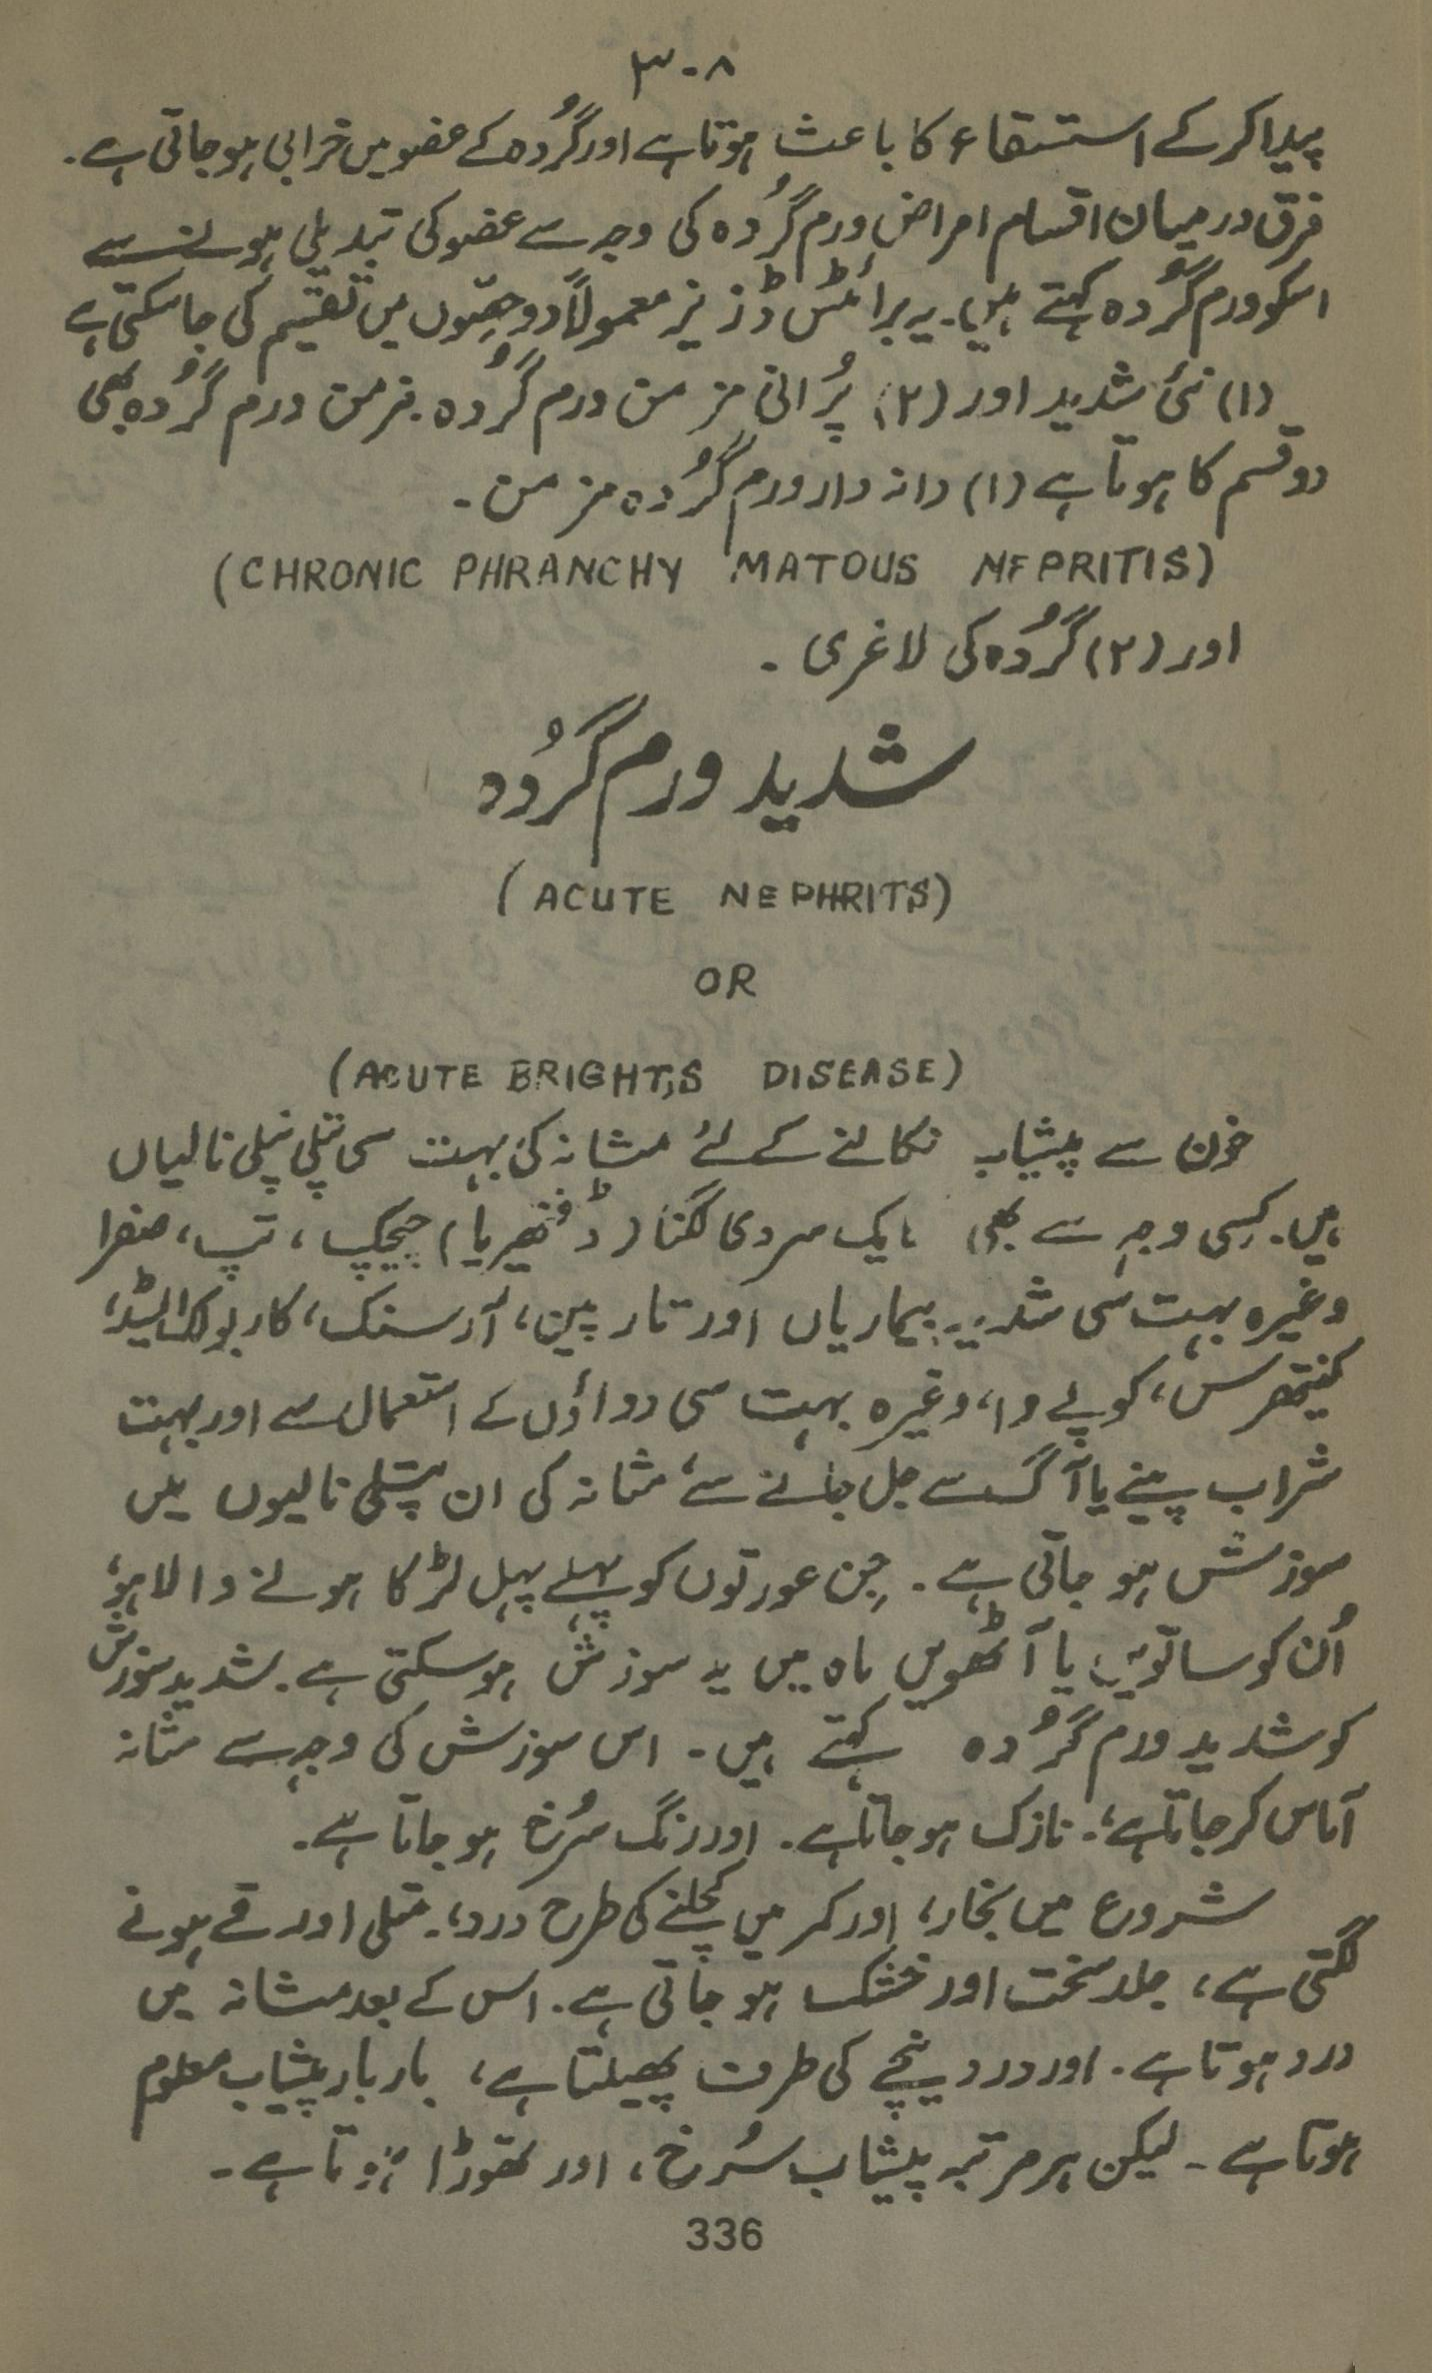 ۳۰۸
پیدا کرکے استسقاء کا باعث ہوتا ہے اور گُردہ کے عضو میں خرابی ہو جاتی ہے۔
فرق درمیان اقسام امراض ورم گُردہ کی وجہ سے عضو کی تبدیلی ہونے سے
اسکو ورم گُردہ کہتے ہیں۔ یہ برائٹس ڈزیز معمولاً دو حصّوں میں تقسیم کی جاسکتی ہے
(۱) نئی شدید اور (۲) پُرانی مزمن ورم گُردہ۔ مزمن ورم گُردہ بھی
دو قسم کا ہوتا ہے (۱) دانہ دار ورم گُردہ مزمن۔
(CHRONIC PHRANCHY MATOUS NEPRITIS)
اور (۲) گُردہ کی لاغری۔
شدید ورم گُردہ
(ACUTE NEPHRITS)
OR
(ACUTE BRIGHT,S DISEASE)
خون سے پیشاب نکالنے کے لئے مثانہ کی بہت سی پتلی پتلی نالیاں
ہیں۔ کِسی وجہ سے بھی ایک سردی لگنا (ڈفتھیریا) چیچک، تپ، صفرا
وغیرہ بہت سی شدید بیماریاں اور تارپین، آرسنک، کاربولک ایسڈ،
کینتھرس، کوپے وا، وغیرہ بہت سی دواؤں کے استعمال سے اور بہت
شراب پینے یا آگ سے جل جانے سے، مثانہ کی ان پتلی نالیوں میں
سوزش ہو جاتی ہے۔ جِن عورتوں کو پہلے پہل لڑکا ہونے والا ہو،
اُن کو ساتویں یا آٹھویں ماہ میں یہ سوزش ہوسکتی ہے۔ شدید سوزش
کو شدید ورم گُردہ کہتے ہیں۔ اس سوزش کی وجہ سے مثانہ
آماس کر جاتا ہے،۔ نازک ہو جاتا ہے۔ اور رنگ سُرخ ہو جاتا ہے۔
شروع میں بخار، اور کمر میں کچلنے کی طرح درد،۔ متلی اور قے ہونے
لگتی ہے، جلد سخت اور خشک ہو جاتی ہے۔ اس کے بعد مثانہ میں
درد ہوتا ہے۔ اور درد نیچے کی طرف پھیلتا ہے، بار بار پیشاب معلوم
ہوتا ہے۔ لیکن ہر مرتبہ پیشاب سُرخ، اور تھوڑا ہوتا ہے۔
336